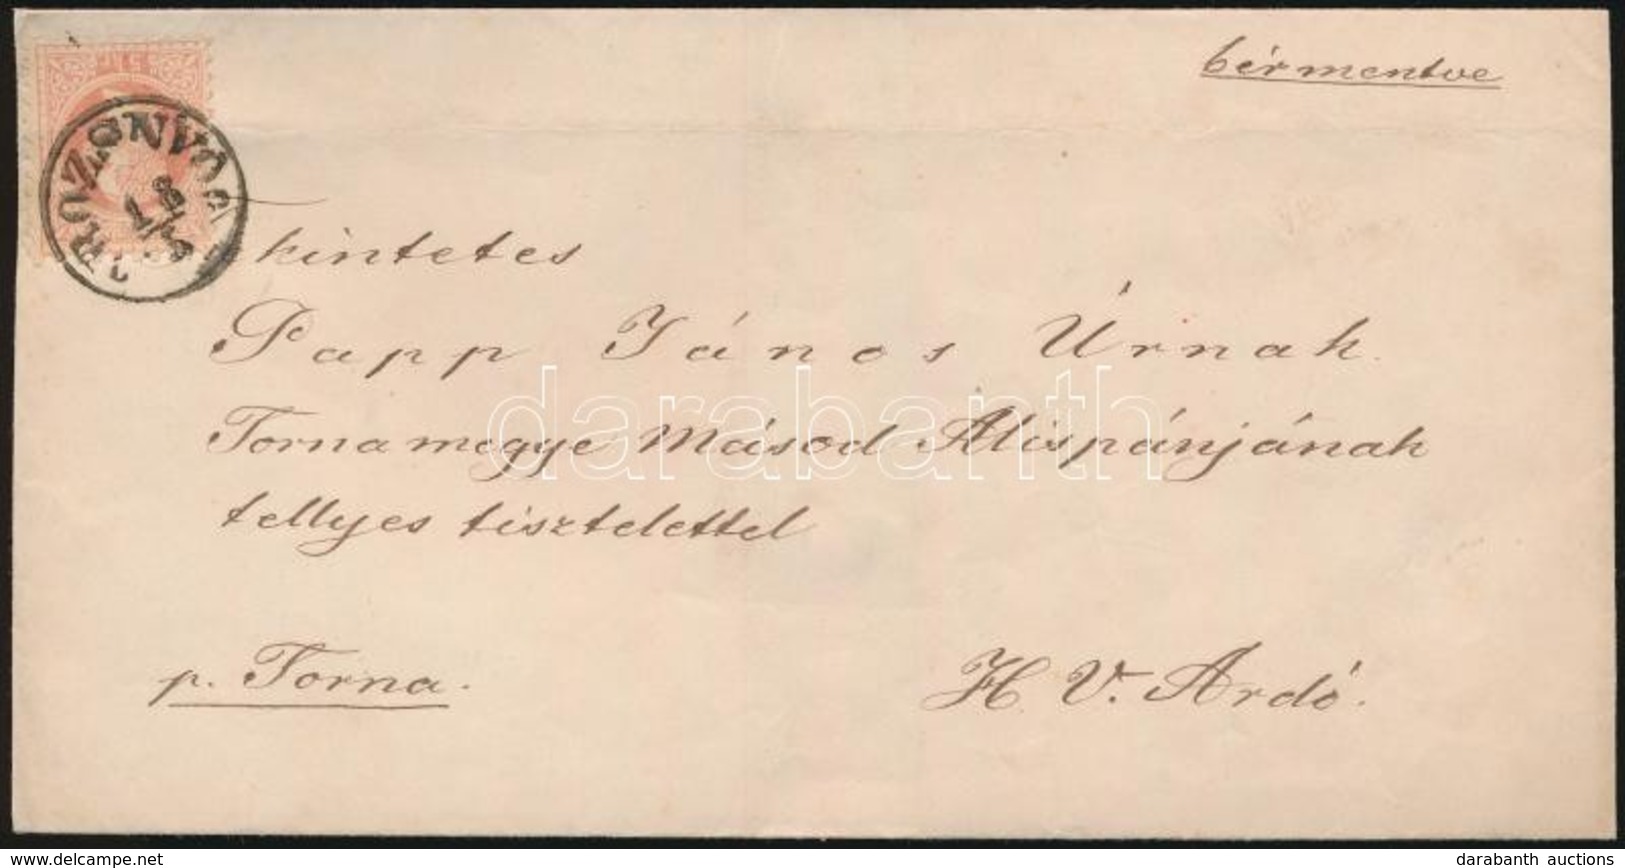 bérmentve
5 kr
ROZSNYÓ
18/2
Tkintetes
Papp János Úrnak
Torna megye Másod Alispánjának
tellyes tisztelettel
p. Torna.
H. V. Ardó.
darabanth
delcampe.net
darabanth auctions